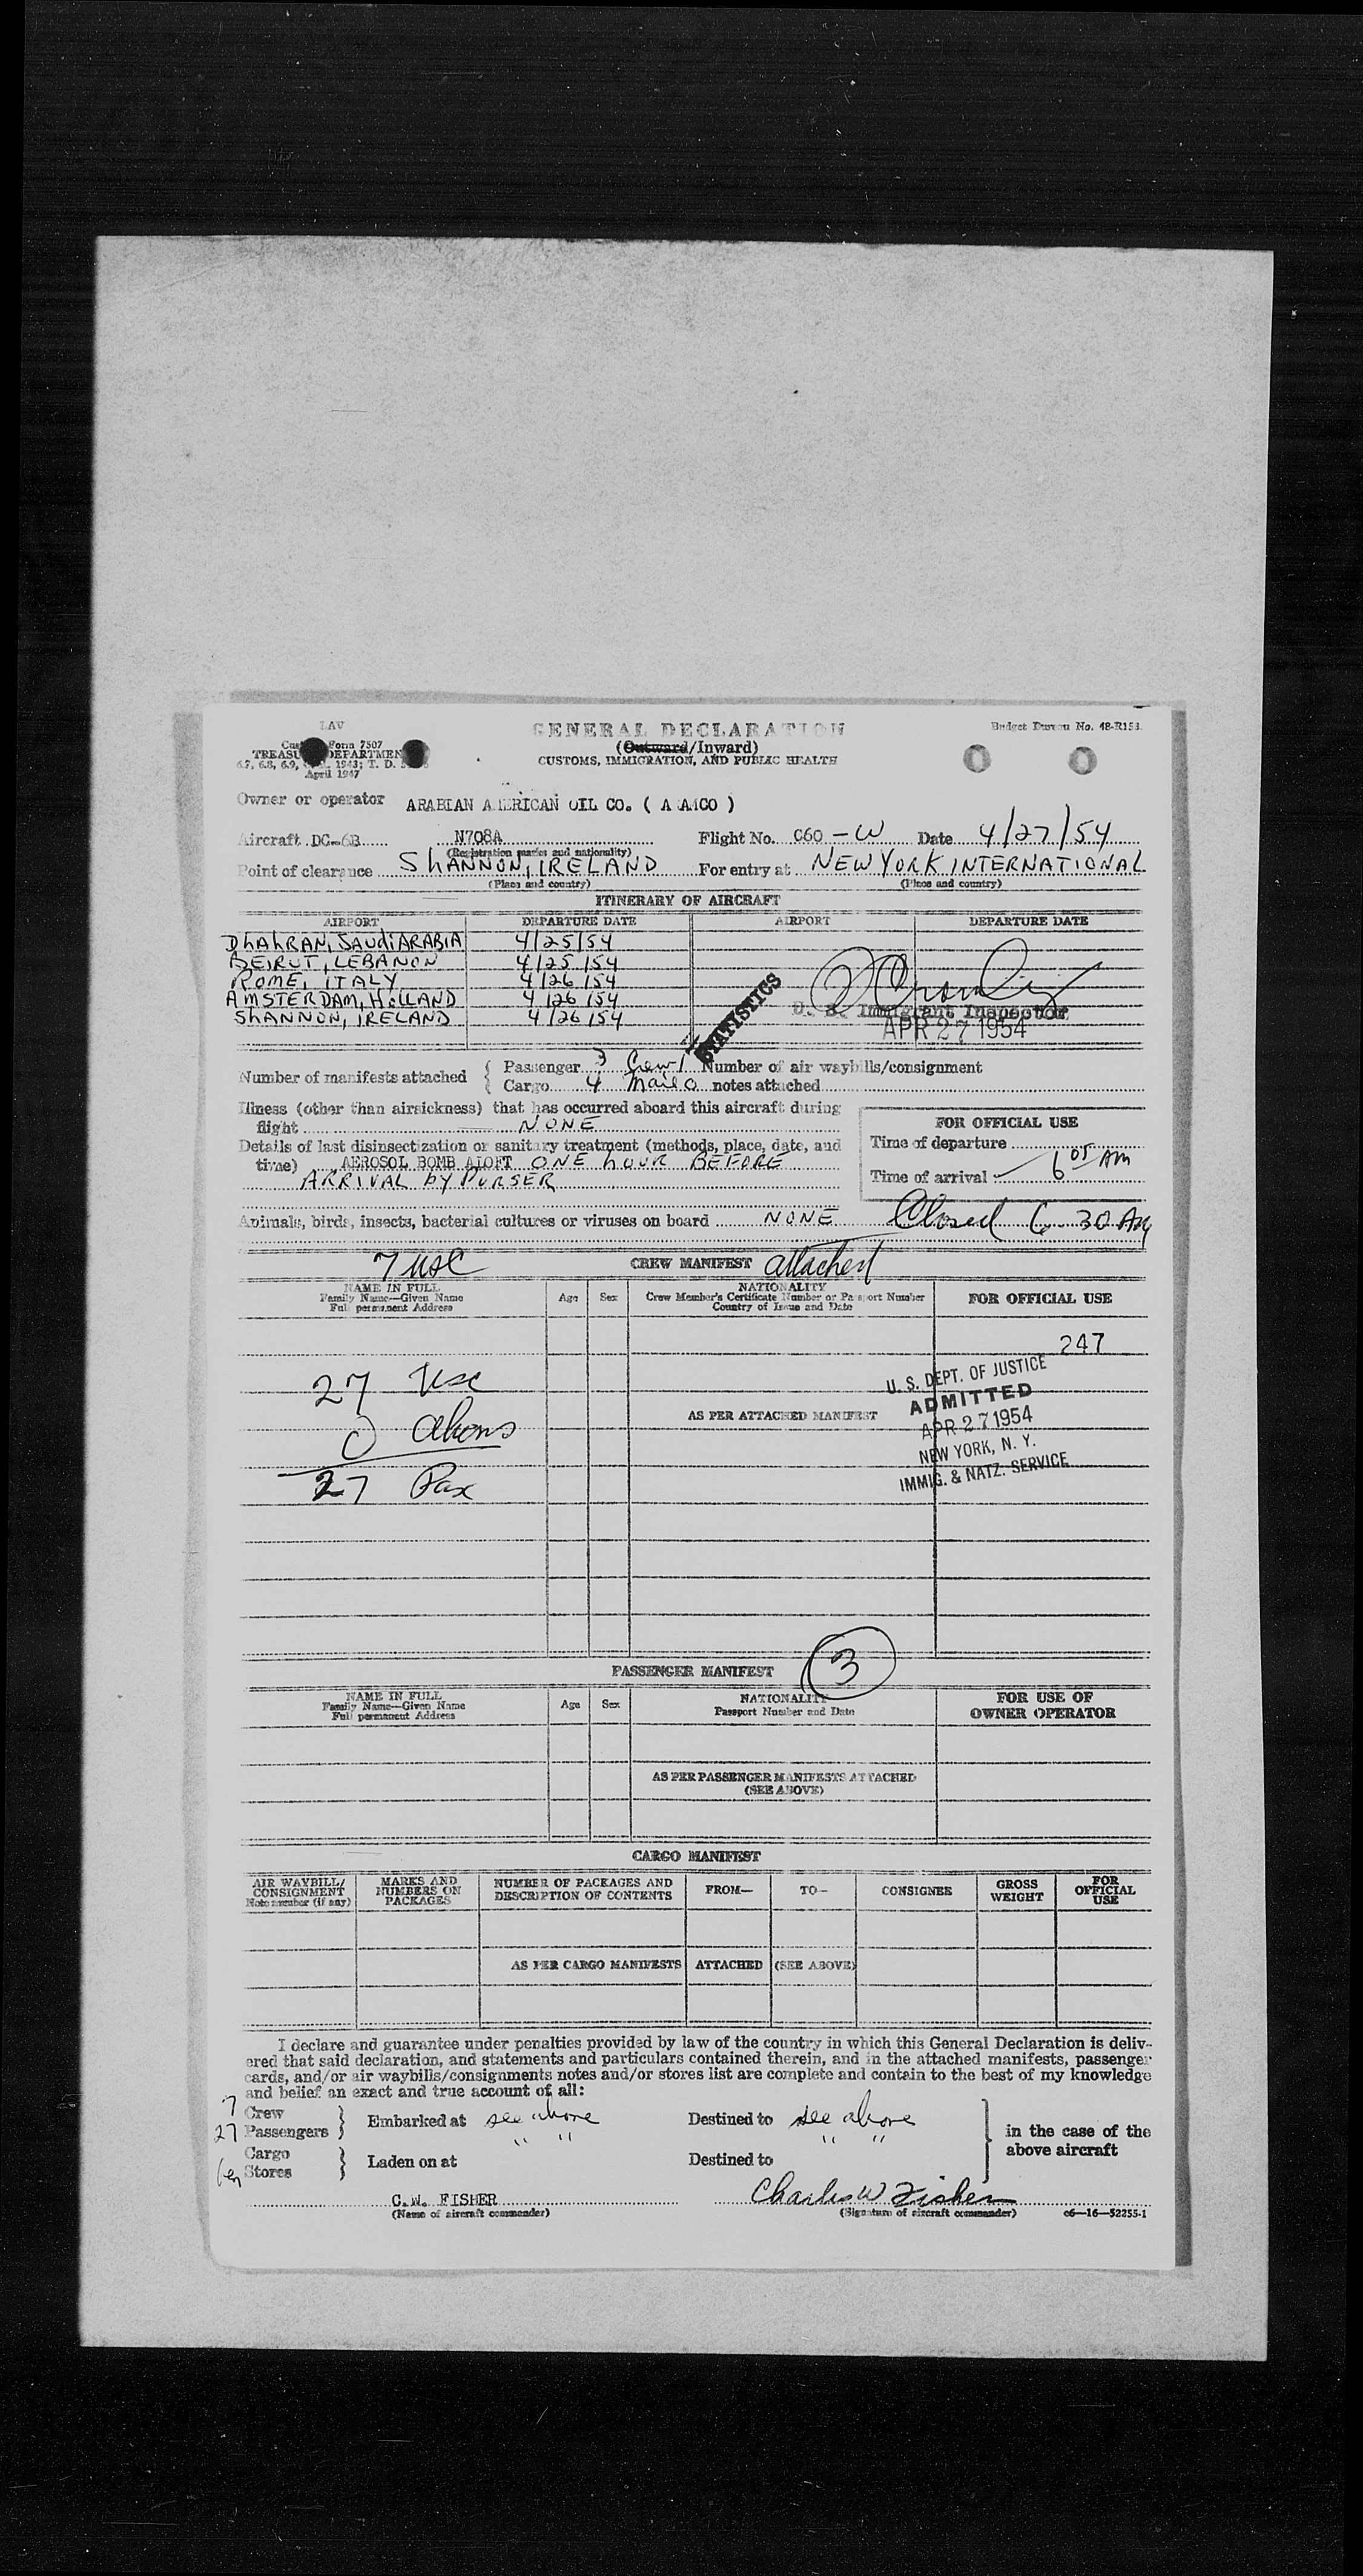 LAV
GENERAL DECLARATION
Budget Bureau No. 48-R153.
Form 7507
(Outward/Inward)
CUSTOMS, IMMIGRATION, AND PUBLIC HEALTH
6.7, 6.8, 6.9, 1943; T. D.
April 1947
Owner or operator ARABIAN A ERICAN OIL CO. ( A AMCO )
Aircraft DC-6B N708A Flight No. C60 - W Date 4/27/54
(Registration marks and nationality)
Point of clearance SHANNON, IRELAND For entry at NEW YORK INTERNATIONAL
(Place and country) (Place and country)
ITINERARY OF AIRCRAFT
AIRPORT DEPARTURE DATE AIRPORT DEPARTURE DATE
DHAHRAN, SAUDI ARABIA 4/25/54
BEIRUT, LEBANON 4/25/54
ROME, ITALY 4/26/54
AMSTERDAM, HOLLAND 4/26/54
SHANNON, IRELAND 4/26/54
STATISTICS
U. S. Immigrant Inspector
APR 27 1954
Number of manifests attached { Passenger 3 Crew 1 Number of air waybills/consignment
Cargo 4 Mail 0 notes attached
Illness (other than airsickness) that has occurred aboard this aircraft during
flight NONE
FOR OFFICIAL USE
Details of last disinsectization or sanitary treatment (methods, place, date, and
time) AEROSOL BOMB ALOFT ONE HOUR BEFORE
ARRIVAL BY PURSER
Time of departure
Time of arrival 6 05 AM
Animals, birds, insects, bacterial cultures or viruses on board NONE Closed 6 30 AM
7 USC CREW MANIFEST attached
NAME IN FULL
Family Name—Given Name
Full permanent Address
Age Sex
NATIONALITY
Crew Member's Certificate Number or Passport Number
Country of Issue and Date
FOR OFFICIAL USE
247
27 USC
0 aliens
27 Pax
AS PER ATTACHED MANIFEST
U. S. DEPT. OF JUSTICE
ADMITTED
APR 27 1954
NEW YORK, N. Y.
IMMIG. & NATZ. SERVICE
PASSENGER MANIFEST 3
NAME IN FULL
Family Name—Given Name
Full permanent Address
Age Sex
NATIONALITY
Passport Number and Date
FOR USE OF
OWNER OPERATOR
AS PER PASSENGER MANIFESTS ATTACHED
(SEE ABOVE)
CARGO MANIFEST
AIR WAYBILL/
CONSIGNMENT
Note number (if any)
MARKS AND
NUMBERS ON
PACKAGES
NUMBER OF PACKAGES AND
DESCRIPTION OF CONTENTS
FROM— TO— CONSIGNEE
GROSS
WEIGHT
FOR
OFFICIAL
USE
AS PER CARGO MANIFESTS ATTACHED (SEE ABOVE)
I declare and guarantee under penalties provided by law of the country in which this General Declaration is deliv-
ered that said declaration, and statements and particulars contained therein, and in the attached manifests, passenger
cards, and/or air waybills/consignments notes and/or stores list are complete and contain to the best of my knowledge
and belief an exact and true account of all:
7 Crew
27 Passengers } Embarked at see above Destined to see above
Cargo " " " "
Stores } Laden on at Destined to
in the case of the
above aircraft
C.W. FISHER Charles W Fisher
(Name of aircraft commander) (Signature of aircraft commander) c6—16—52255-1